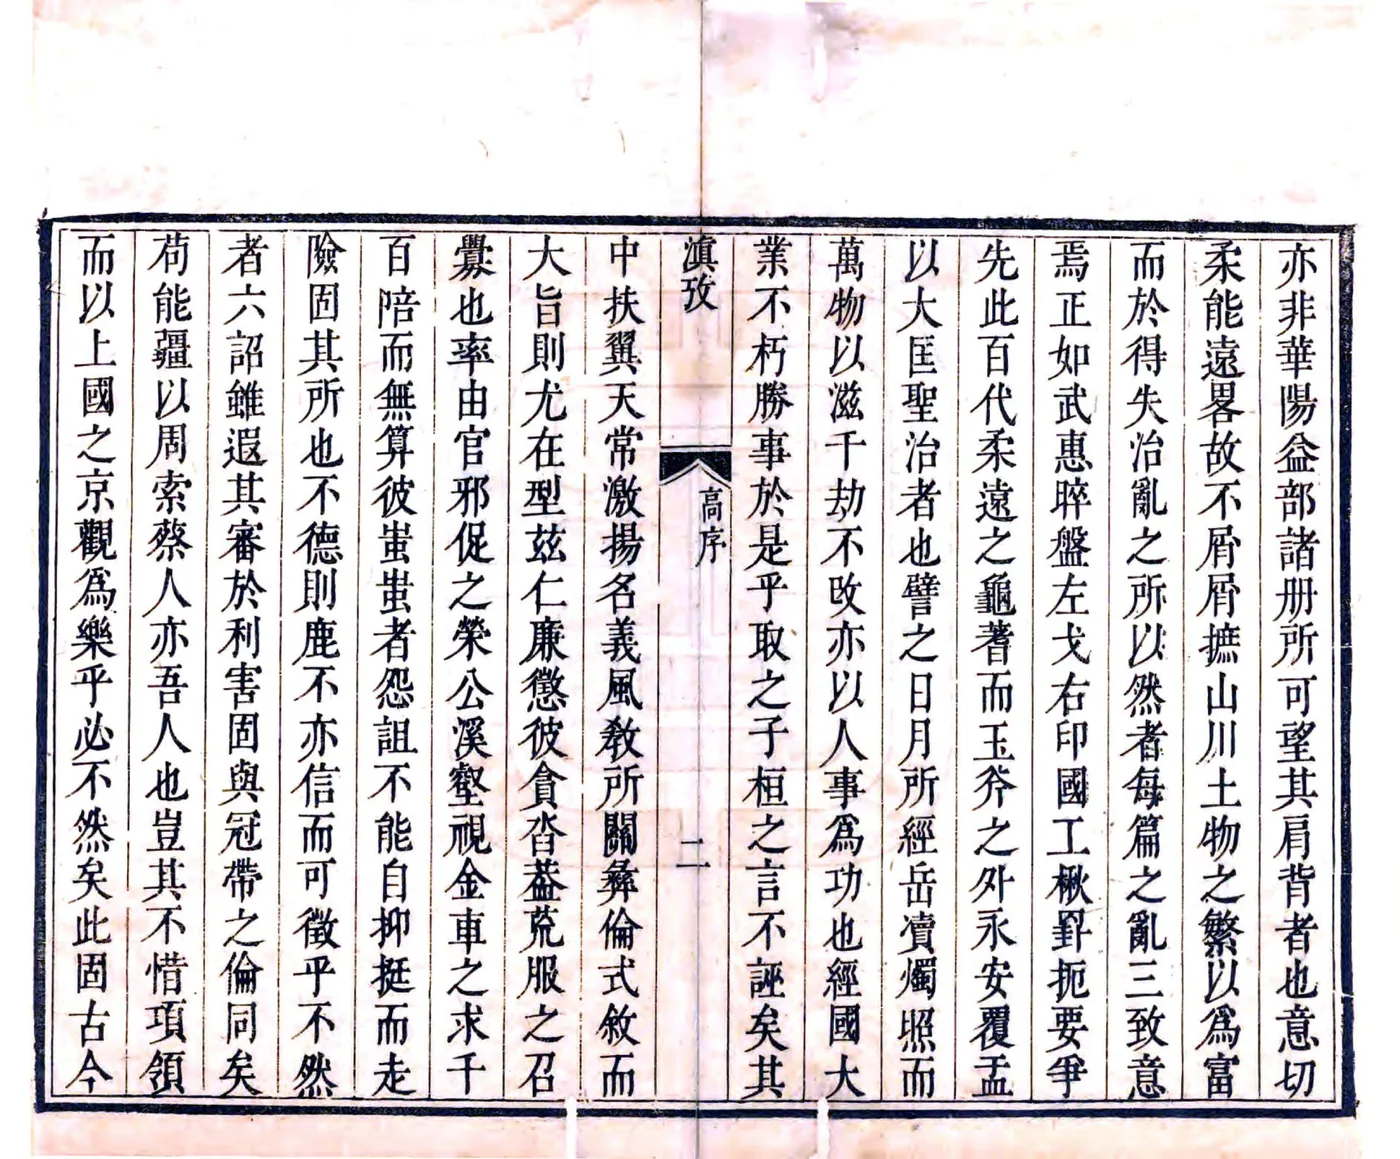 亦非華陽益部諸册所可望其肩背者也意切
柔能遠畧故不屑屑摭山川土物之繁以爲富
而於得失治亂之所以然者每篇之亂三致意
焉正如武惠晬盤左戈右印國工楸罫扼要爭
先此百代柔遠之龜蓍而玉斧之外永安覆盂
以大匡聖治者也譬之日月所經岳瀆燭照而
萬物以滋千劫不改亦以人事爲功也經國大
業不朽勝事於是乎取之子桓之言不誣矣其
滇攷
高序
二
中扶翼天常激揚名義風敎所關彝倫式敘而
大旨則尤在型茲仁廉懲彼貪沓葢荒服之召
釁也率由官邪促之榮公溪壑視金車之求千
百陪而無算彼蚩蚩者怨詛不能自抑挺而走
險固其所也不德則鹿不亦信而可徵乎不然
者六詔雖遐其審於利害固與冠帶之倫同矣
苟能疆以周索蔡人亦吾人也豈其不惜項領
而以上國之京觀爲樂乎必不然矣此固古今